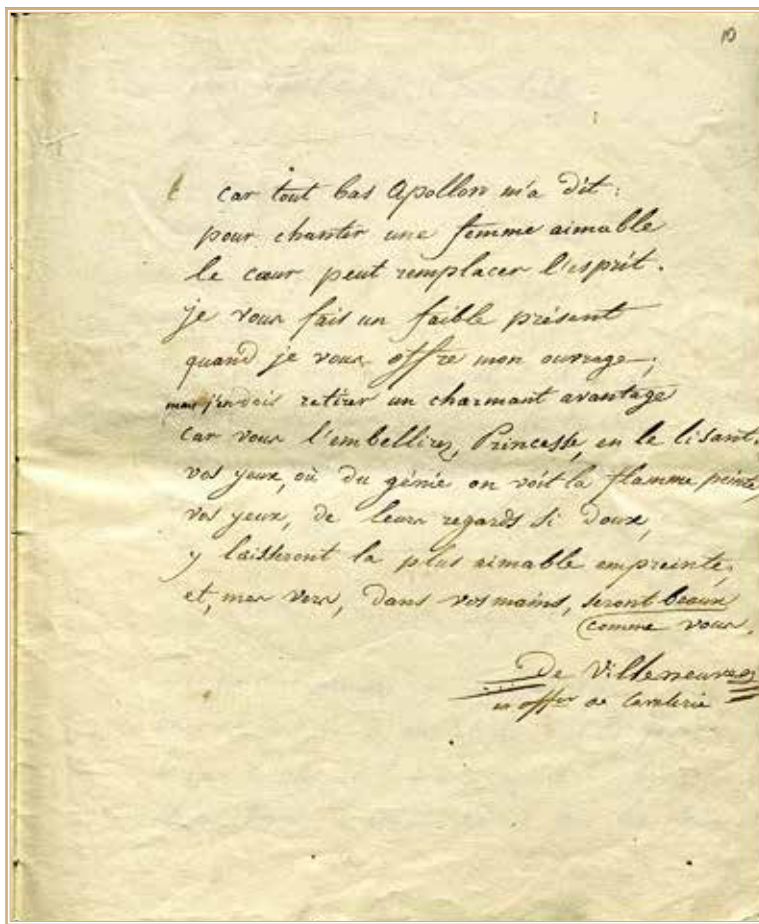 10
car tout bas Apollon m'a dit:
pour chanter une femme aimable
le cœur peut remplacer l'esprit.
je vous fais un faible présent
quand je vous offre mon ouvrage;
mais j'en dois retirer un charmant avantage
car vous l'embellirez, Princesse, en le lisant.
vos yeux, où du génie on voit la flamme peinte,
vos yeux, de leurs regards si doux,
y laisseront la plus aimable empreinte,
et, mes vers, dans vos mains, seront beaux
comme vous.
De Villeneuve
offer de Cavalerie